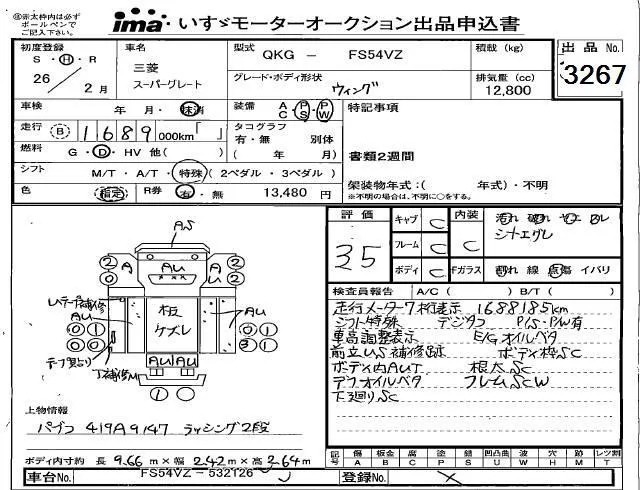 ㊟※赤太枠内は必ず
ボールペンで
ご記入下さい。
ima いすゞモーターオークション出品申込書
初度登録
S・H・R
26 2月
車名
三菱
スーパーグレート
型式
QKG － FS54VZ
グレード・ボディ形状
ウィング
積載 (kg)
排気量 (cc)
12,800
出品 No.
3267
車検 年 月・抹消
装備 A C ・ P S ・ P W
特記事項
走行 B 1 6 8 9 000km「 」
タコグラフ
有・無 別体
( 年 月)
燃料 G・D・HV 他( )
書類2週間
シフト M/T・A/T・特殊 (2ペダル・3ペダル)
色 指定 R券 有・無 13,480 円
架装物年式:( 年式)・不明
※不明の場合は、不明に○をする。
評価
3.5
キャブ C
フレーム C
ボディ C
内装 C
汚れ 破れ ヤエ ヌレ
シートエグレ
Fガラス 割れ 線 点傷 イバリ
AS
2 0 A AU A 2 0
レテープ補修
AU
0 1
板
ケズレ
AU
0 1
3 1
AU AU
J補修M
1 0
検査員報告 A/C ( ) B/T ( )
走行メーター7桁表示 1688185km
シフト特殊 デジタコ P/S・P/W有
車高調整表示 E/Gオイルベタ
前立US補修跡 ボディ枠SC
ボディ内AUT 根太SC
デフオイルベタ フレームSCW
下廻りSC
上物情報
パブコ 419A9147 ラッシング2段
ボディ内寸約 長 9.66 m×幅 2.42 m×高 2.64 m
記号 傷 A 板金 B 腐 C 塗 P 錆 S 凹凸曲 U 波 W 穴 H 跡 M 汚 T レンズ割 L
車台No. FS54VZ－532126
登録No.